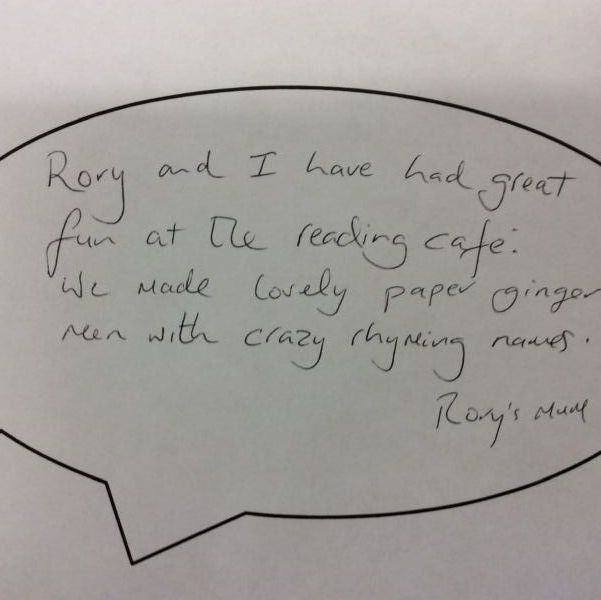 Rory and I have had great
fun at the reading café.
We made lovely paper ginger
men with crazy rhyming names.
Rory's mum